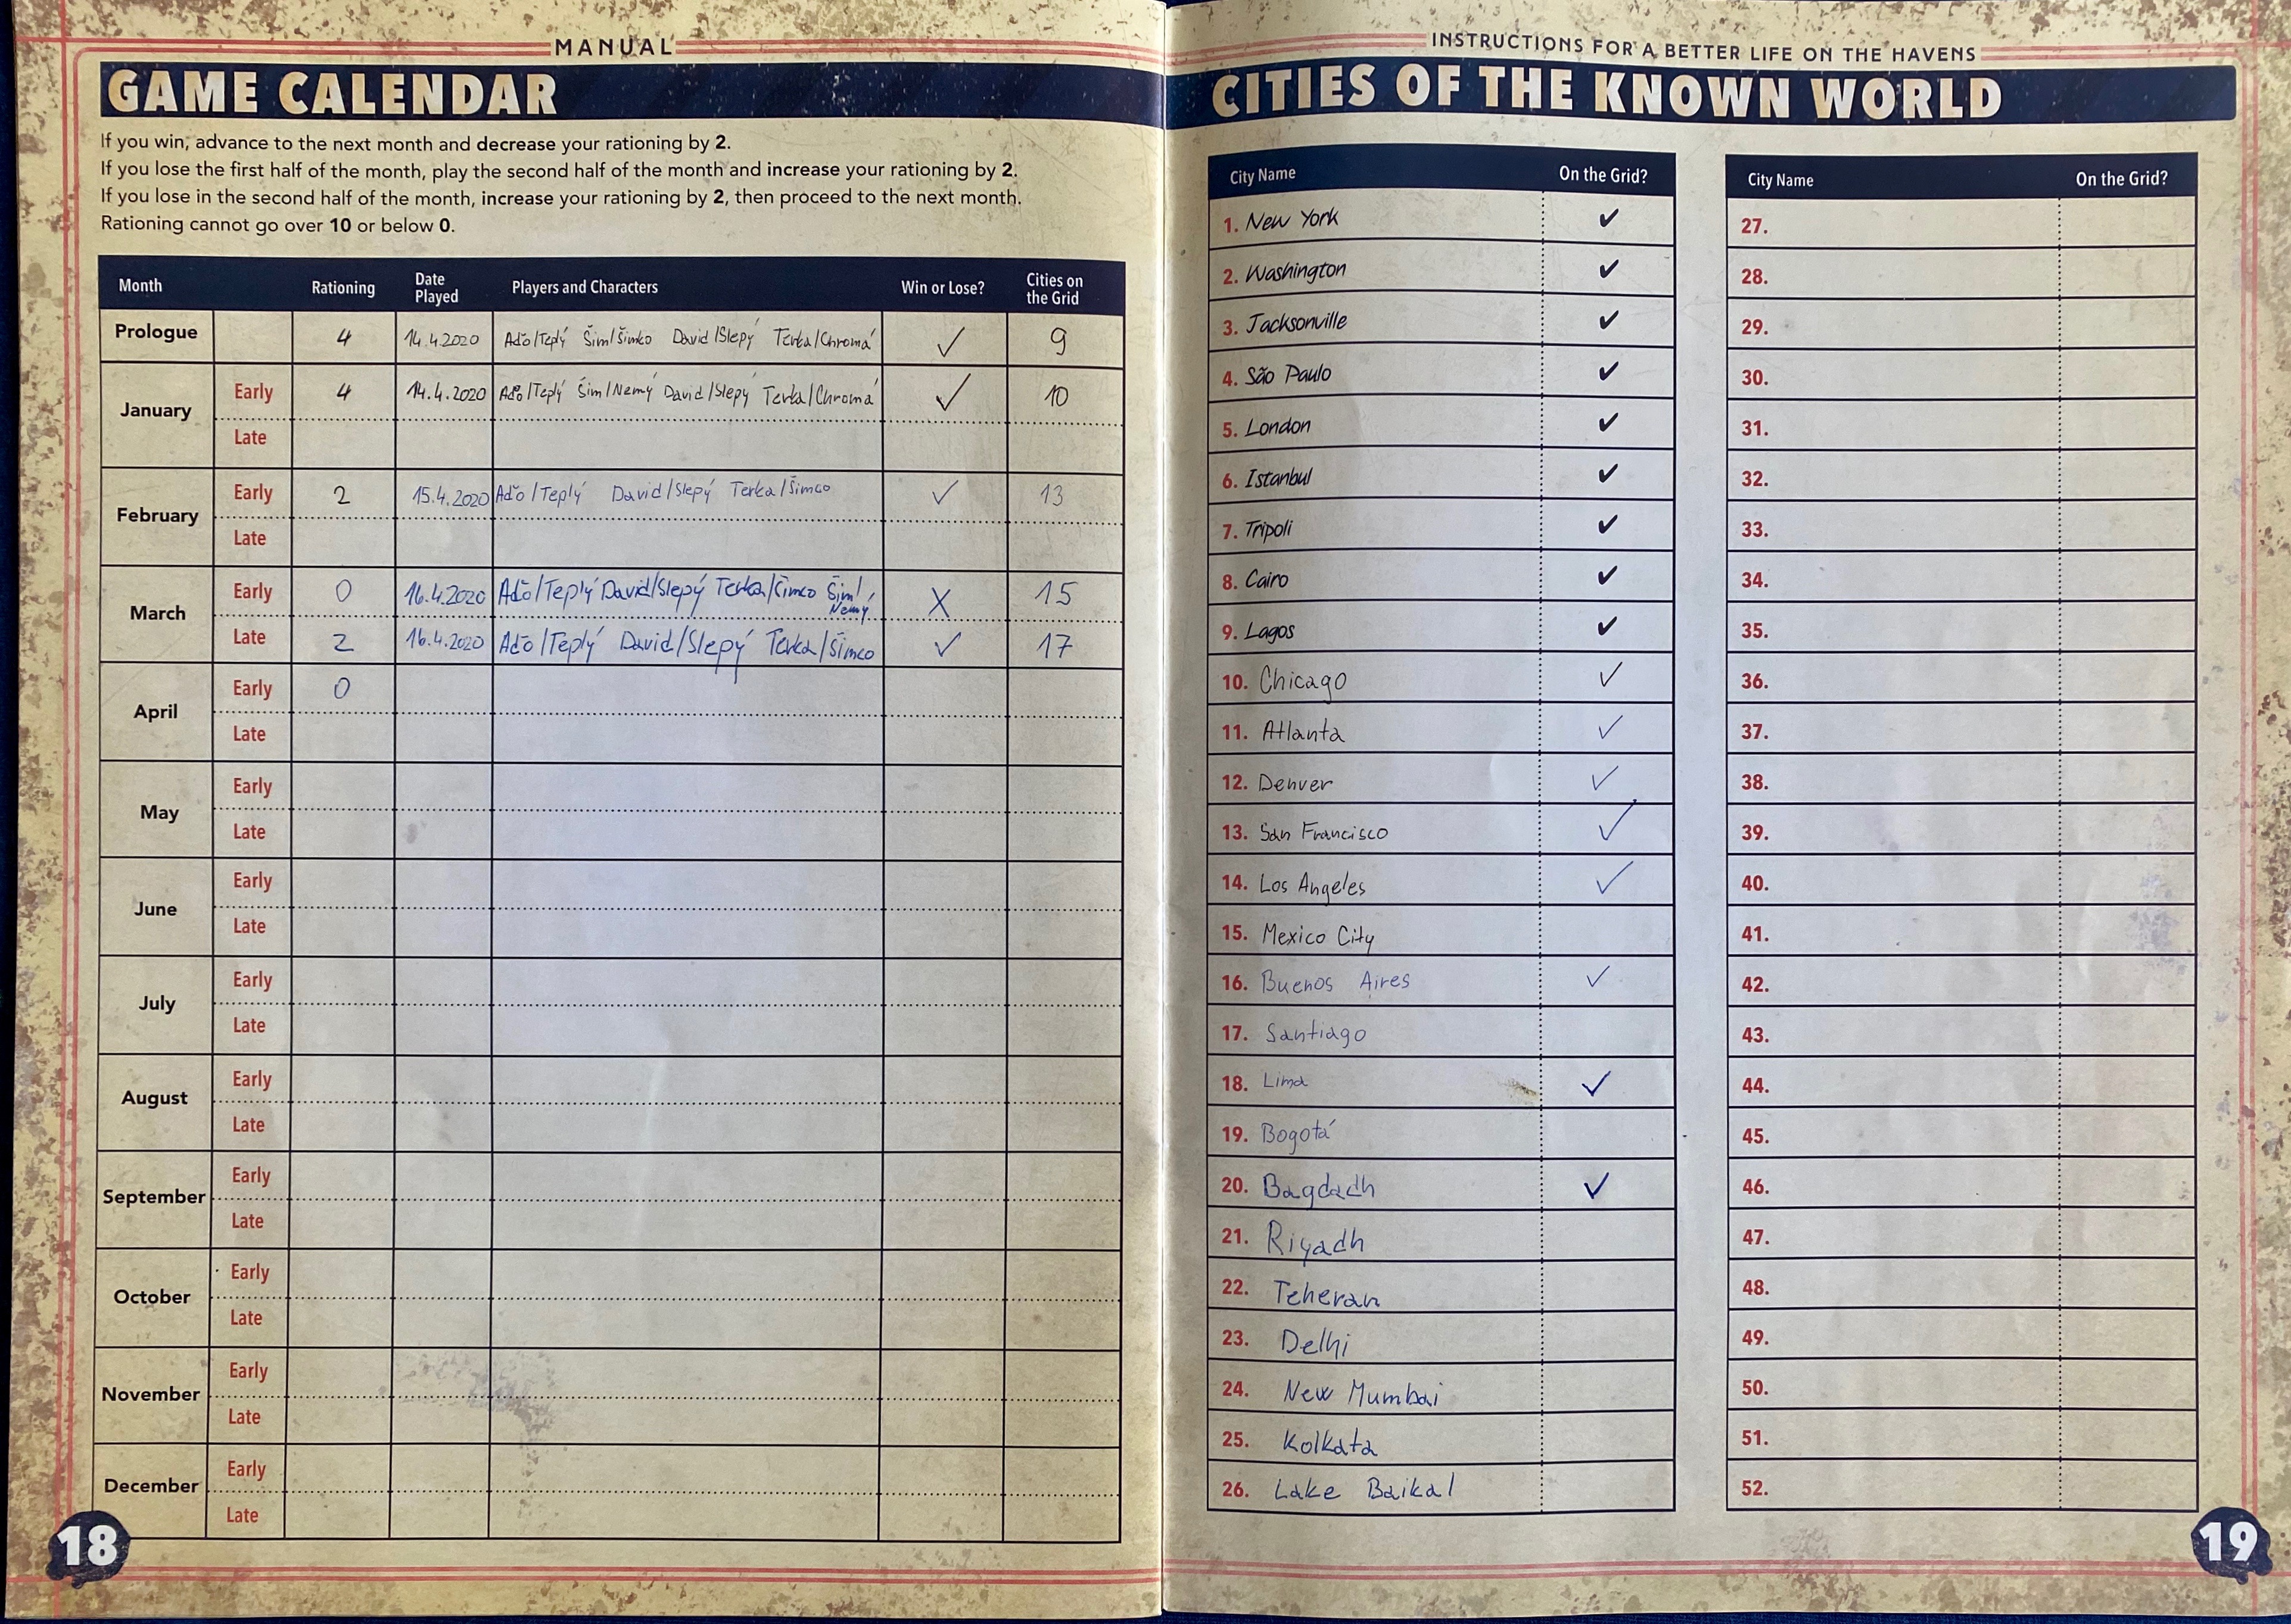 MANUAL
GAME CALENDAR
If you win, advance to the next month and decrease your rationing by 2.
If you lose the first half of the month, play the second half of the month and increase your rationing by 2.
If you lose in the second half of the month, increase your rationing by 2, then proceed to the next month.
Rationing cannot go over 10 or below 0.
Month Rationing Date Played Players and Characters Win or Lose? Cities on the Grid
Prologue 4 14.4.2020 Aďo/Teplý Šim/Šimko David/Slepý Terka/Chromá ✓ 9
January Early 4 14.4.2020 Aďo/Teplý Šim/Nemý David/Slepý Terka/Chromá ✓ 10
Late
February Early 2 15.4.2020 Aďo/Teplý David/Slepý Terka/Šimco ✓ 13
Late
March Early 0 16.4.2020 Aďo/Teplý David/Slepý Terka/Šimco Šim/Nemý X 15
Late 2 16.4.2020 Aďo/Teplý David/Slepý Terka/Šimco ✓ 17
April Early 0
Late
May Early
Late
June Early
Late
July Early
Late
August Early
Late
September Early
Late
October Early
Late
November Early
Late
December Early
Late
18
INSTRUCTIONS FOR A BETTER LIFE ON THE HAVENS
CITIES OF THE KNOWN WORLD
City Name On the Grid?
1. New York ✓
2. Washington ✓
3. Jacksonville ✓
4. São Paulo ✓
5. London ✓
6. Istanbul ✓
7. Tripoli ✓
8. Cairo ✓
9. Lagos ✓
10. Chicago ✓
11. Atlanta ✓
12. Denver ✓
13. San Francisco ✓
14. Los Angeles ✓
15. Mexico City
16. Buenos Aires ✓
17. Santiago
18. Lima ✓
19. Bogotá
20. Bagdadh ✓
21. Riyadh
22. Teheran
23. Delhi
24. New Mumbai
25. Kolkata
26. Lake Baikal
City Name On the Grid?
27.
28.
29.
30.
31.
32.
33.
34.
35.
36.
37.
38.
39.
40.
41.
42.
43.
44.
45.
46.
47.
48.
49.
50.
51.
52.
19